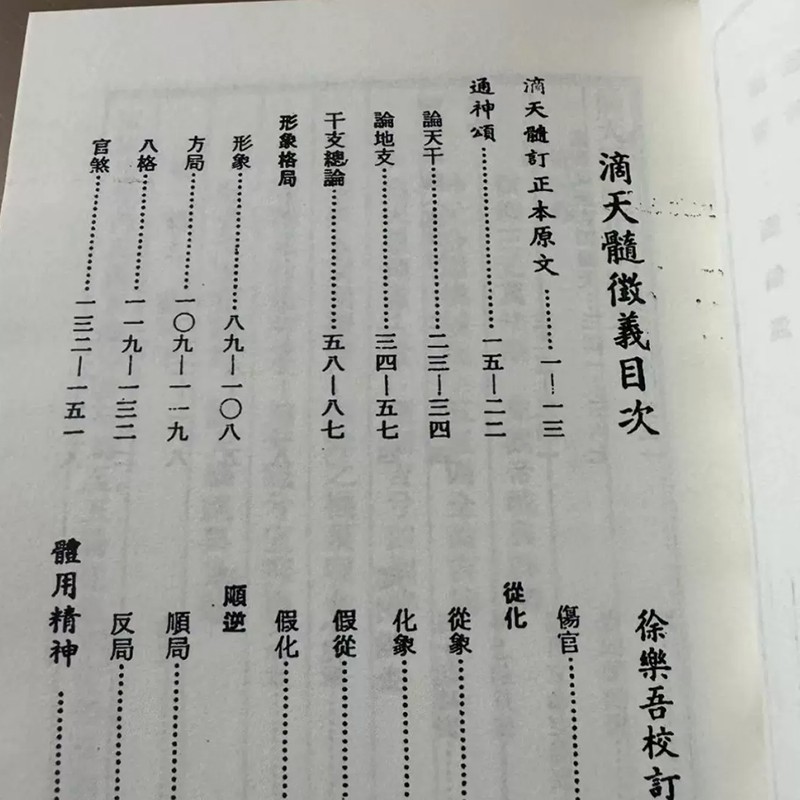 滴天髓徵義目次
徐樂吾校訂
滴天髓訂正本原文………一—一三
通神頌………一五—二二
論天干………二三—三四
論地支………三四—五七
干支總論………五八—八七
形象格局
形象………八九—一〇八
方局………一〇九—一一九
八格………一一九—一三二
官煞………一三二—一五一
傷官………
從化
從象………
化象………
假從………
假化………
順逆
順局………
反局………
體用精神………